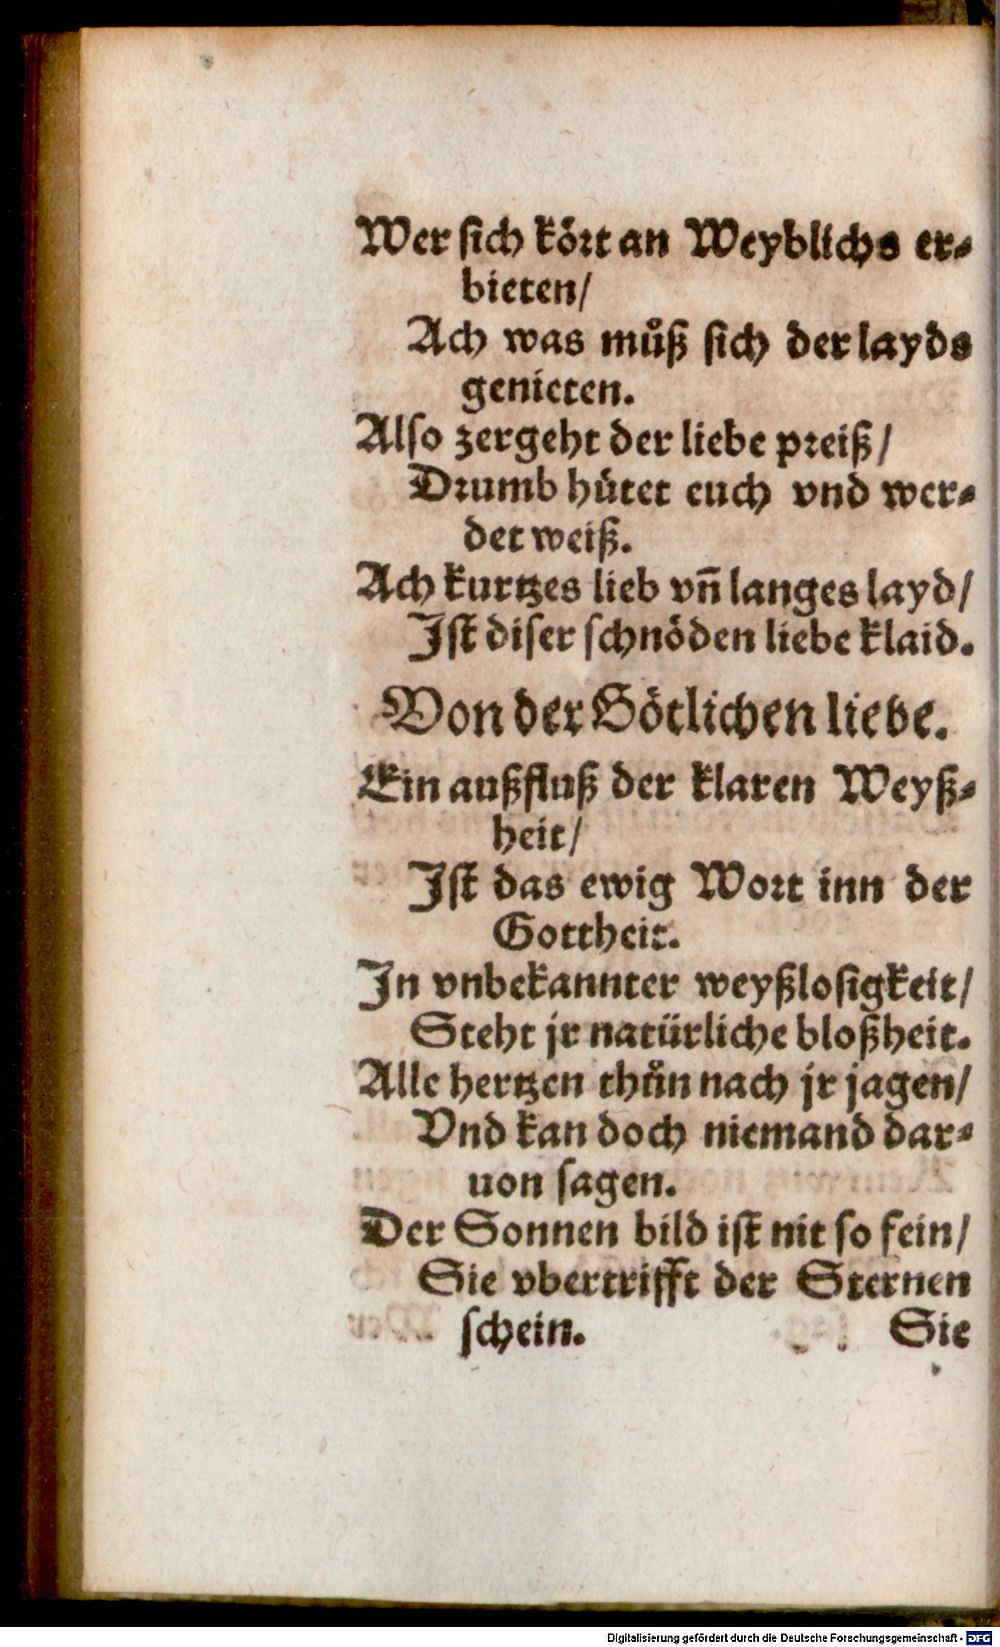 Wer sich kört an Weyblichs er-
bieten/
Ach was můß sich der layds
genieten.
Also zergeht der liebe preiß/
Drumb hütet euch vnd wer-
det weiß.
Ach kurtzes lieb vn̄ langes layd/
Ist diser schnöden liebe klaid.
Von der Götlichen liebe.
Ein außfluß der klaren Weyß-
heit/
Ist das ewig Wort inn der
Gottheit.
In vnbekannter weyßlosigkeit/
Steht jr natürliche bloßheit.
Alle hertzen thůn nach jr jagen/
Vnd kan doch niemand dar-
uon sagen.
Der Sonnen bild ist nit so fein/
Sie vbertrifft der Sternen
schein. Sie
Digitalisierung gefördert durch die Deutsche Forschungsgemeinschaft - DFG